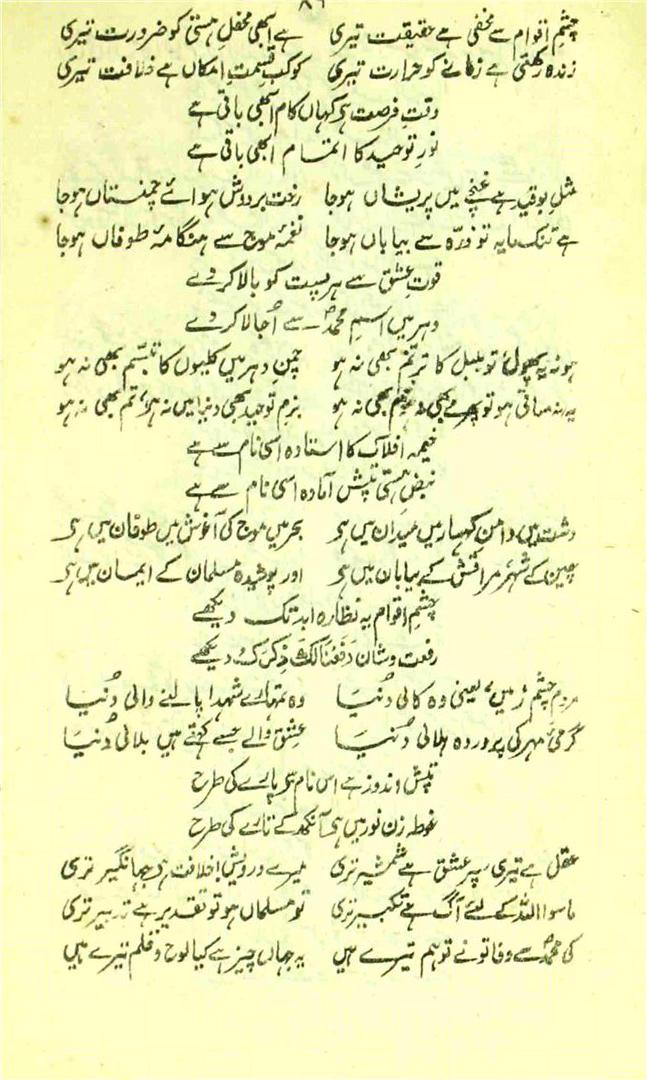 ۸۶
چشمِ اقوام سے مخفی ہے حقیقت تیری ہے ابھی محفلِ ہستی کو ضرورت تیری
زندہ رکھتی ہے زمانے کو حرارت تیری کوکبِ قسمتِ امکاں ہے خلافت تیری
وقتِ فرصت ہے کہاں کام ابھی باقی ہے
نورِ توحید کا اتمام ابھی باقی ہے
مثلِ بو قید ہے غنچے میں پریشاں ہوجا رخت بردوش ہوائے چمنستاں ہوجا
ہے تنک مایہ تو ذرّہ سے بیاباں ہوجا نغمۂ موج سے ہنگامۂ طوفاں ہوجا
قوتِ عشق سے ہر پست کو بالا کردے
دہر میں اسمِ محمدؐ سے اُجالا کردے
ہو نہ یہ پھول، تو بلبل کا ترنّم بھی نہ ہو چمنِ دہر میں کلیوں کا تبسّم بھی نہ ہو
یہ نہ ساقی ہو تو پھر مے بھی نہ ہو خم بھی نہ ہو بزمِ توحید بھی دنیا میں نہ ہو، تم بھی نہ ہو
خیمہ افلاک کا استادہ اسی نام سے ہے
نبضِ ہستی تپش آمادہ اسی نام سے ہے
دشت میں دامنِ کہسار میں میدان میں ہے بحر میں موج کی آغوش میں طوفان میں ہے
چین کے شہر، مراقش کے بیابان میں ہے اور پوشیدہ مسلمان کے ایمان میں ہے
چشمِ اقوام یہ نظارہ ابد تک دیکھے
رفعت و شان رَفَعْنَا لَکَ ذِکْرَکْ دیکھے
مردمِ چشمِ زمیں، یعنی وہ کالی دُنیا وہ تمہارے شہدا پالنے والی دُنیا
گرمیٔ مہر کی پروردہ ہلالی دُنیا عشق والے جسے کہتے ہیں بلالی دُنیا
تپش اندوز ہے اس نام سے پارے کی طرح
غوطہ زن نور میں ہے آنکھ کے تارے کی طرح
عقل ہے تیری سپر عشق ہے شمشیر تری میرے درویش! خلافت ہے جہانگیر تری
ماسوا اللہ کے لئے آگ ہے تکبیر تری تو مسلماں ہو تو تقدیر ہے تدبیر تری
کی محمدؐ سے وفا تونے تو ہم تیرے ہیں یہ جہاں چیز ہے کیا لوح و قلم تیرے ہیں